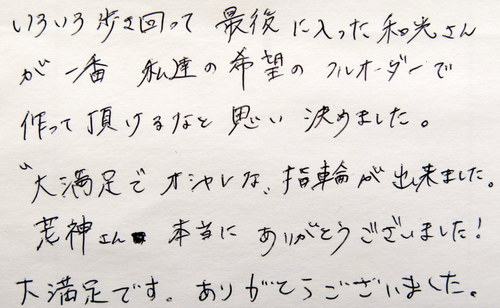 いろいろ歩き回って 最後に入った和光さん
が 一番 私達の希望の フルオーダーで
作って頂けるなと 思い 決めました。
"大満足で オシャレな、指輪が 出来ました。
荒神さん 本当に ありがとうございました!
大満足です。ありがとうございました。